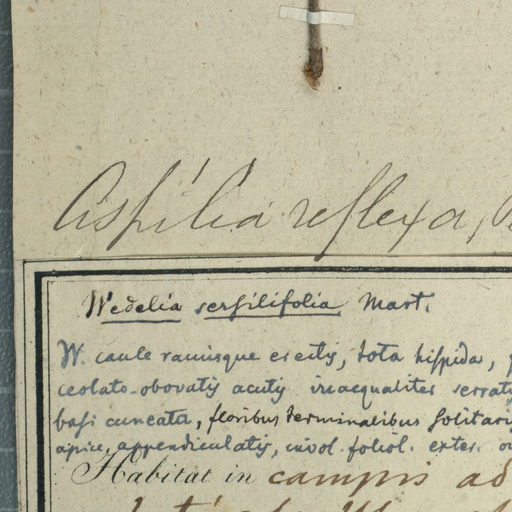 Aspilia reflexa,
Wedelia serpilifolia Mart.
W. caule ramisque erectis, tota hispida,
ceolato-obovatis acutis inaequaliter serratis
basi cuneata, floribus terminalibus solitari
apice appendiculatis, invol. foliol. exter.
Habitat in campis ad